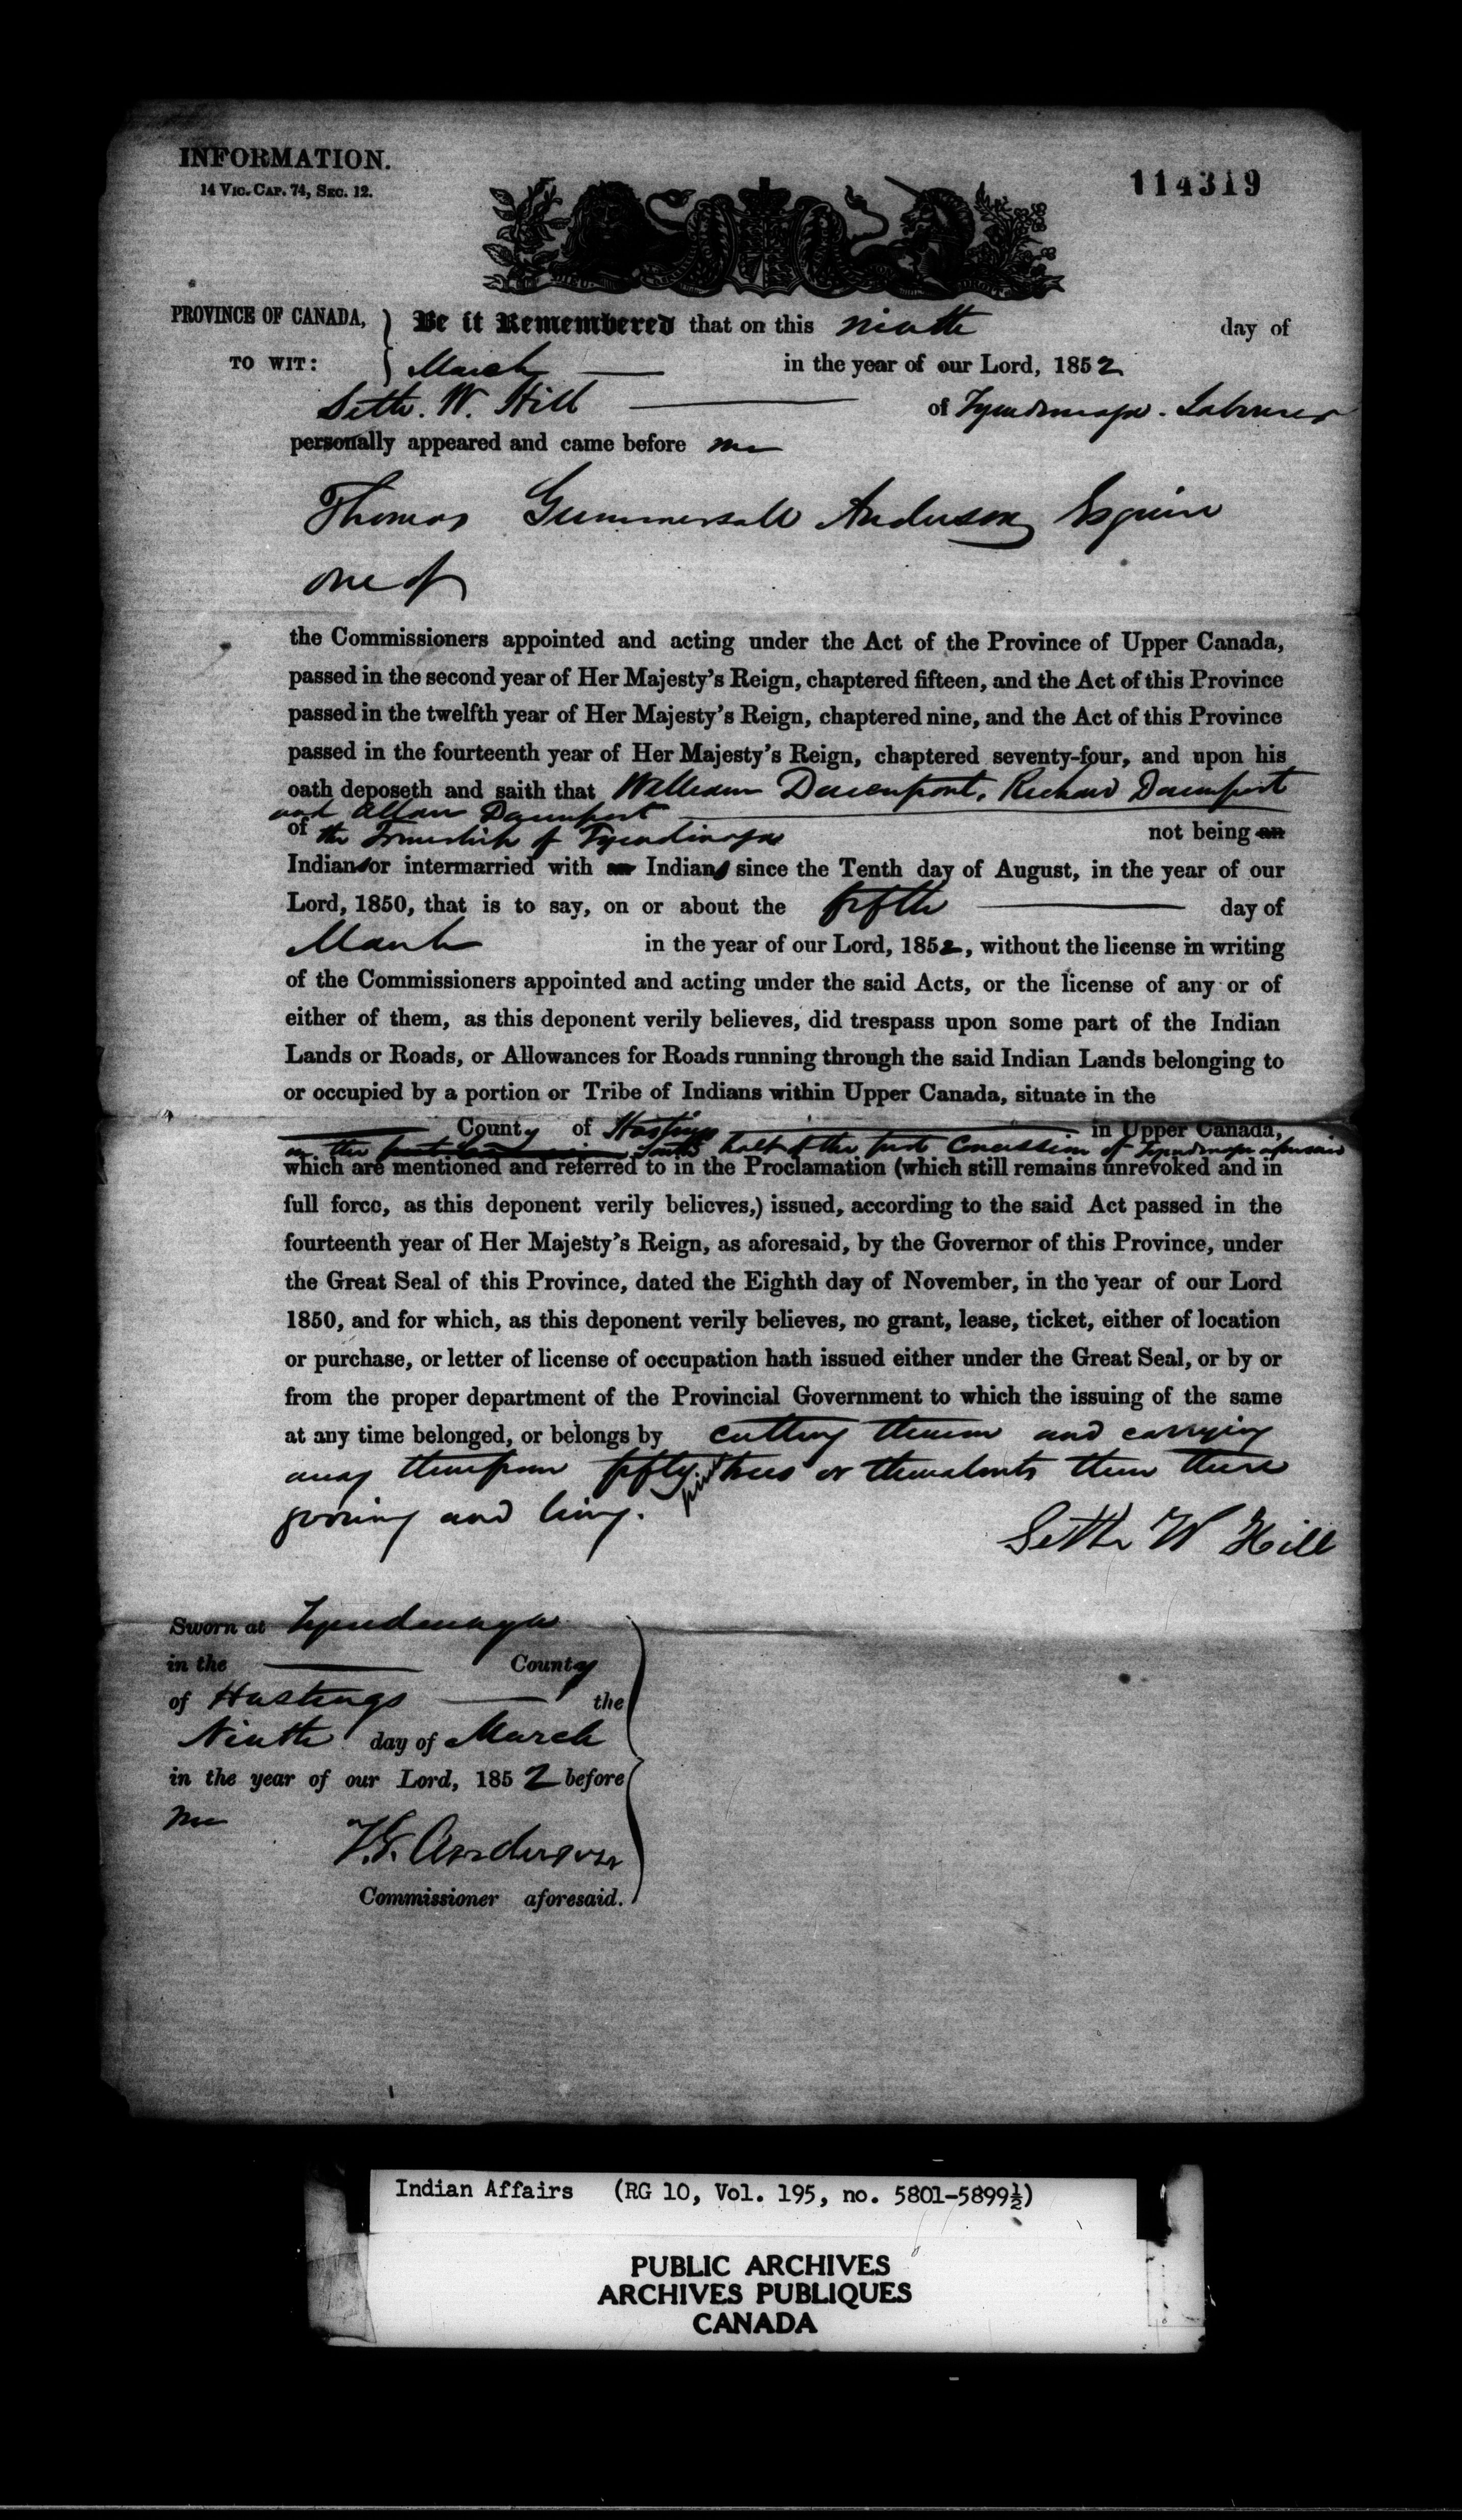 INFORMATION.
14 Vic. Cap. 74, Sec. 12.
114319
PROVINCE OF CANADA,
TO WIT:
Be it Remembered that on this ninth day of
March in the year of our Lord, 1852
Seth. W. Hill of Tyendinaga. Labourer
personally appeared and came before me
Thomas Gummersall Anderson Esquire
one of
the Commissioners appointed and acting under the Act of the Province of Upper Canada,
passed in the second year of Her Majesty's Reign, chaptered fifteen, and the Act of this Province
passed in the twelfth year of Her Majesty's Reign, chaptered nine, and the Act of this Province
passed in the fourteenth year of Her Majesty's Reign, chaptered seventy-four, and upon his
oath deposeth and saith that William Davenport, Richard Davenport
and Allan Davenport
of the Township of Tyendinaga not being an
Indians or intermarried with an Indians since the Tenth day of August, in the year of our
Lord, 1850, that is to say, on or about the fifth day of
March in the year of our Lord, 1852, without the license in writing
of the Commissioners appointed and acting under the said Acts, or the license of any or of
either of them, as this deponent verily believes, did trespass upon some part of the Indian
Lands or Roads, or Allowances for Roads running through the said Indian Lands belonging to
or occupied by a portion or Tribe of Indians within Upper Canada, situate in the
County of Hastings in Upper Canada,
on the South half of the first Concession of Tyendinaga aforesaid
which are mentioned and referred to in the Proclamation (which still remains unrevoked and in
full force, as this deponent verily believes,) issued, according to the said Act passed in the
fourteenth year of Her Majesty's Reign, as aforesaid, by the Governor of this Province, under
the Great Seal of this Province, dated the Eighth day of November, in the year of our Lord
1850, and for which, as this deponent verily believes, no grant, lease, ticket, either of location
or purchase, or letter of license of occupation hath issued either under the Great Seal, or by or
from the proper department of the Provincial Government to which the issuing of the same
at any time belonged, or belongs by cutting thereon and carrying
away therefrom fifty pine trees or thereabouts then there
growing and being.
Seth W Hill
Sworn at Tyendinaga
in the County
of Hastings the
Ninth day of March
in the year of our Lord, 1852 before
me
T.G. Anderson
Commissioner aforesaid.
Indian Affairs (RG 10, Vol. 195, no. 5801-5899½)
PUBLIC ARCHIVES
ARCHIVES PUBLIQUES
CANADA